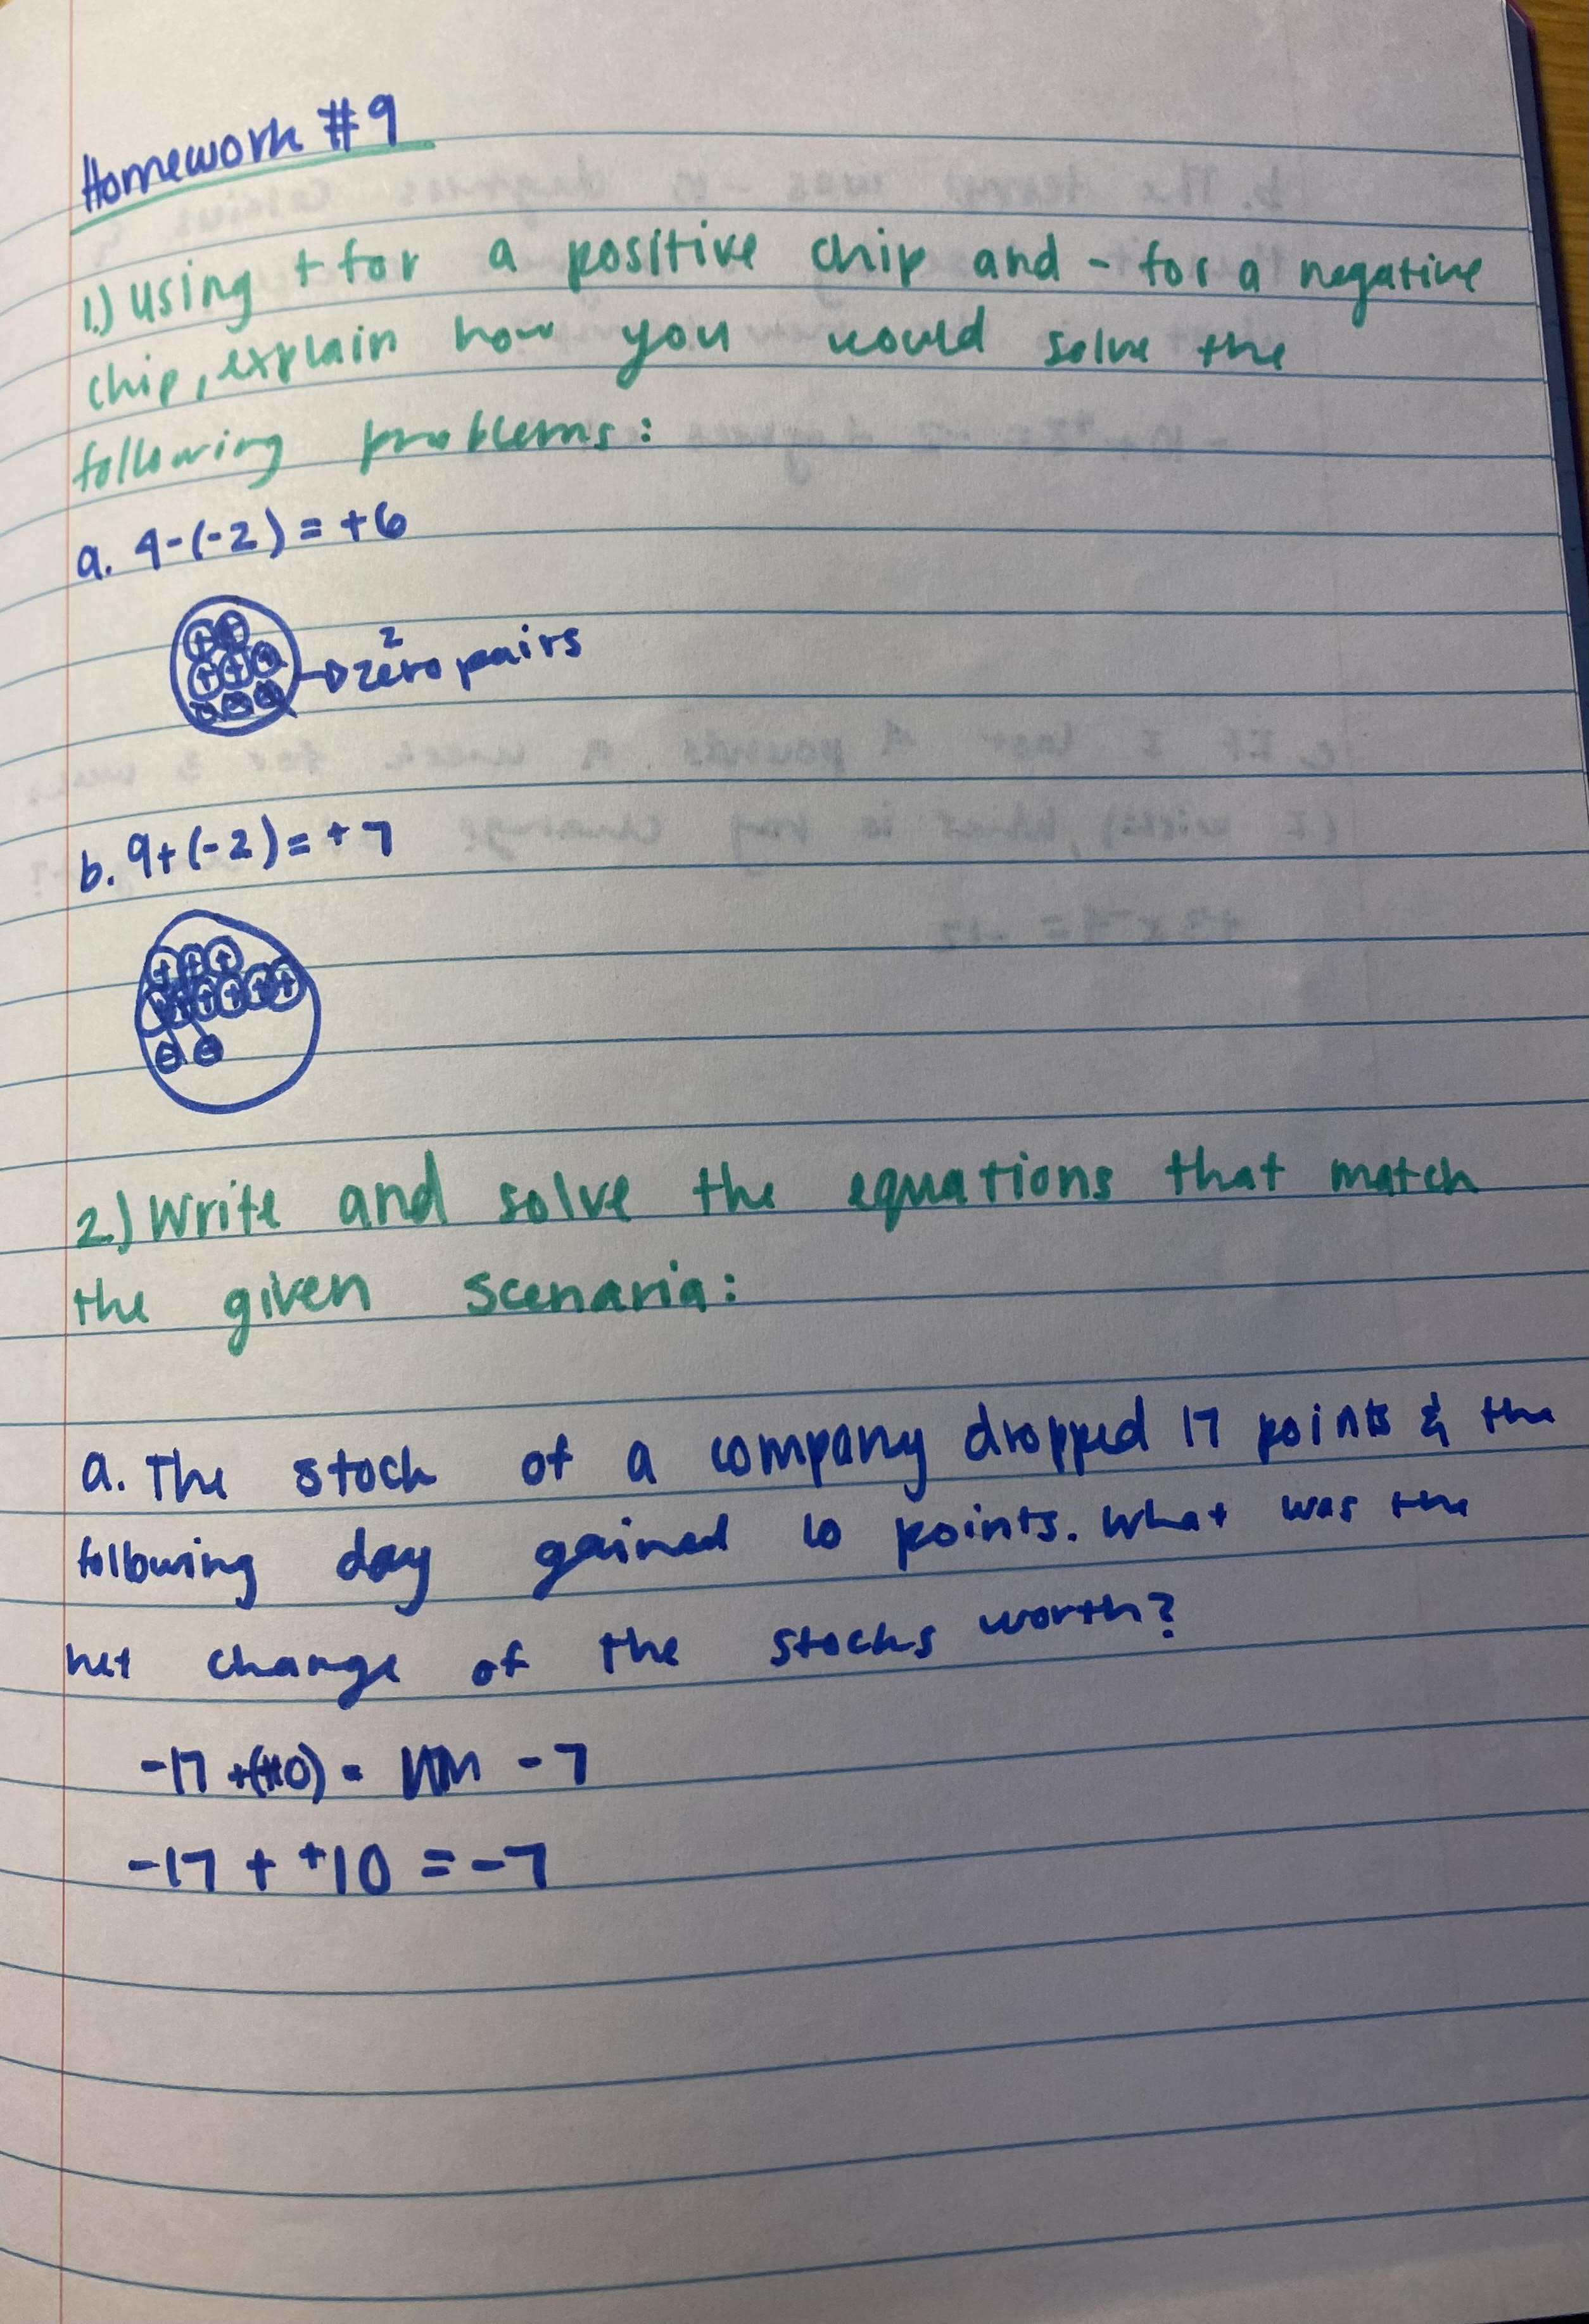 Homework #9
1.) Using + for a positive chip and - for a negative
chip, explain how you would solve the
following problems:
a. 4-(-2) = +6
2
zero pairs
b. 9+(-2) = +7
2.) Write and solve the equations that match
the given scenario:
a. The stock of a company dropped 17 points & the
following day gained 10 points. What was the
net change of the stocks worth?
-17 +(+10) = -7
-17 + +10 = -7